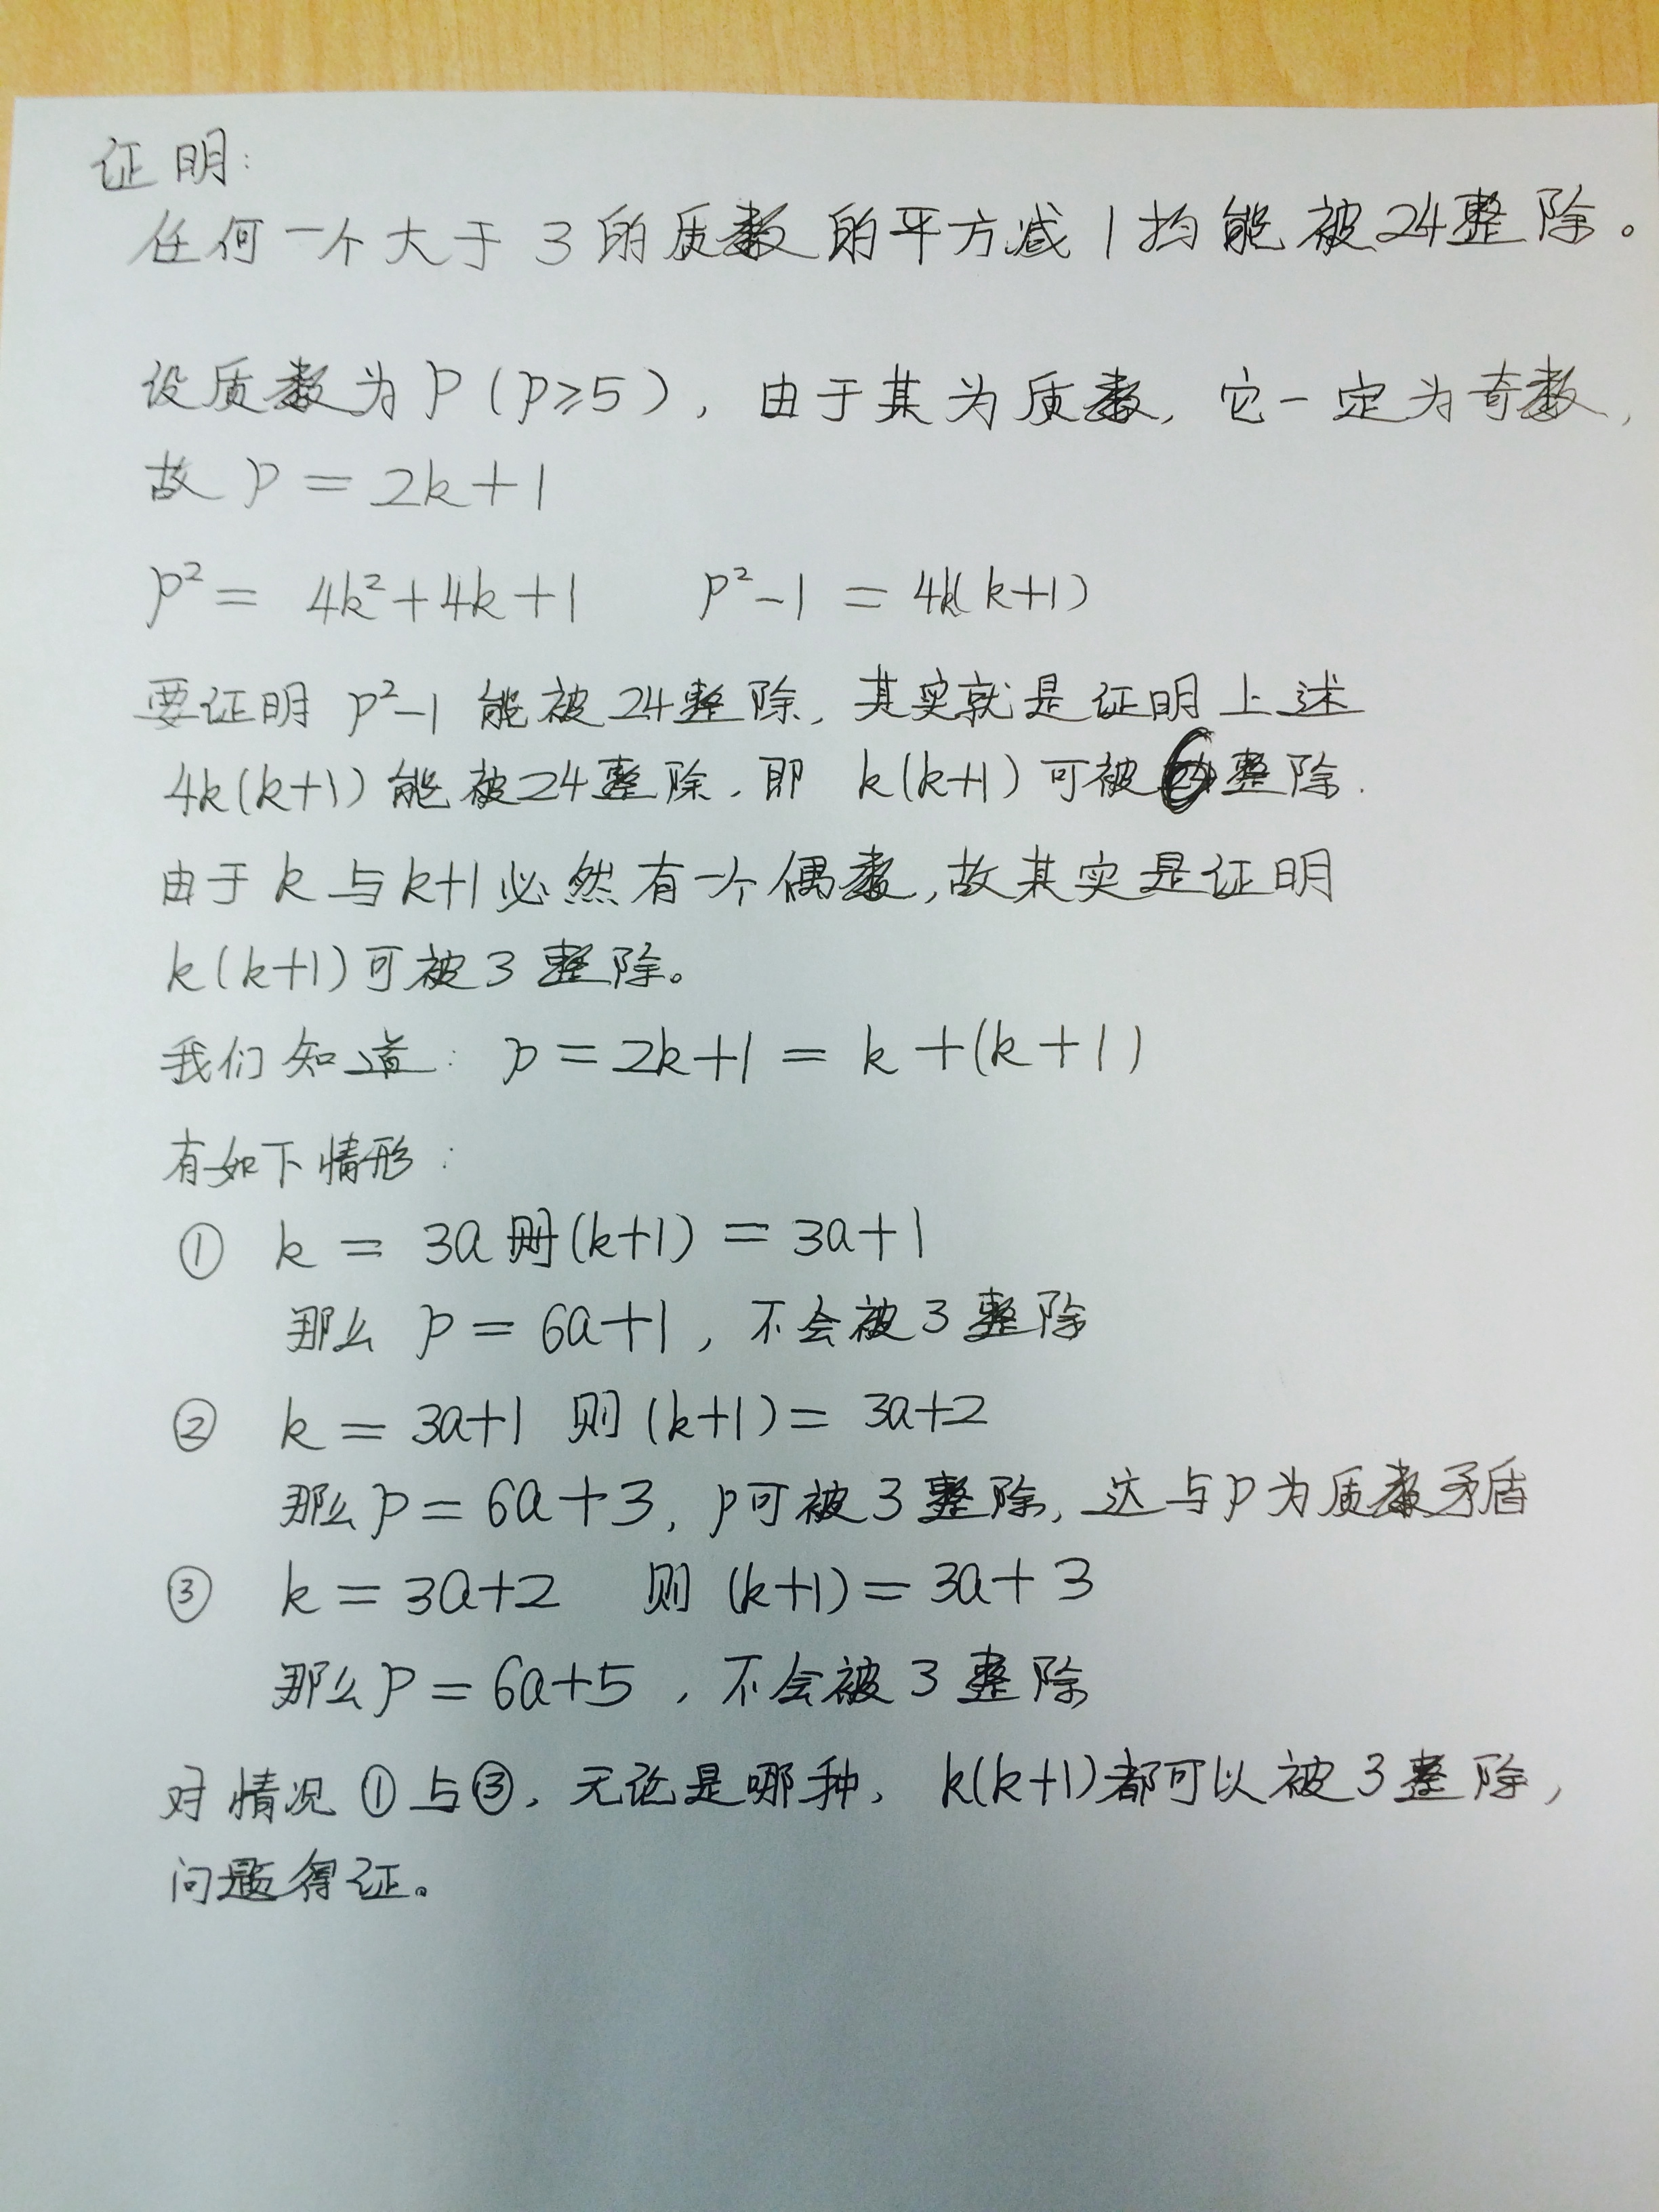 证明:
任何一个大于3的质数的平方减1均能被24整除。
设质数为P(P≥5),由于其为质数,它一定为奇数,
故P=2k+1
P²=4k²+4k+1 P²-1=4k(k+1)
要证明P²-1能被24整除,其实就是证明上述
4k(k+1)能被24整除.即k(k+1)可被6整除.
由于k与k+1必然有一个偶数,故其实是证明
k(k+1)可被3整除。
我们知道:P=2k+1=k+(k+1)
有如下情形:
① k=3a则(k+1)=3a+1
那么P=6a+1,不会被3整除
② k=3a+1则(k+1)=3a+2
那么P=6a+3,P可被3整除,这与P为质数矛盾
③ k=3a+2则(k+1)=3a+3
那么P=6a+5,不会被3整除
对情况①与③,无论是哪种,k(k+1)都可以被3整除,
问题得证。